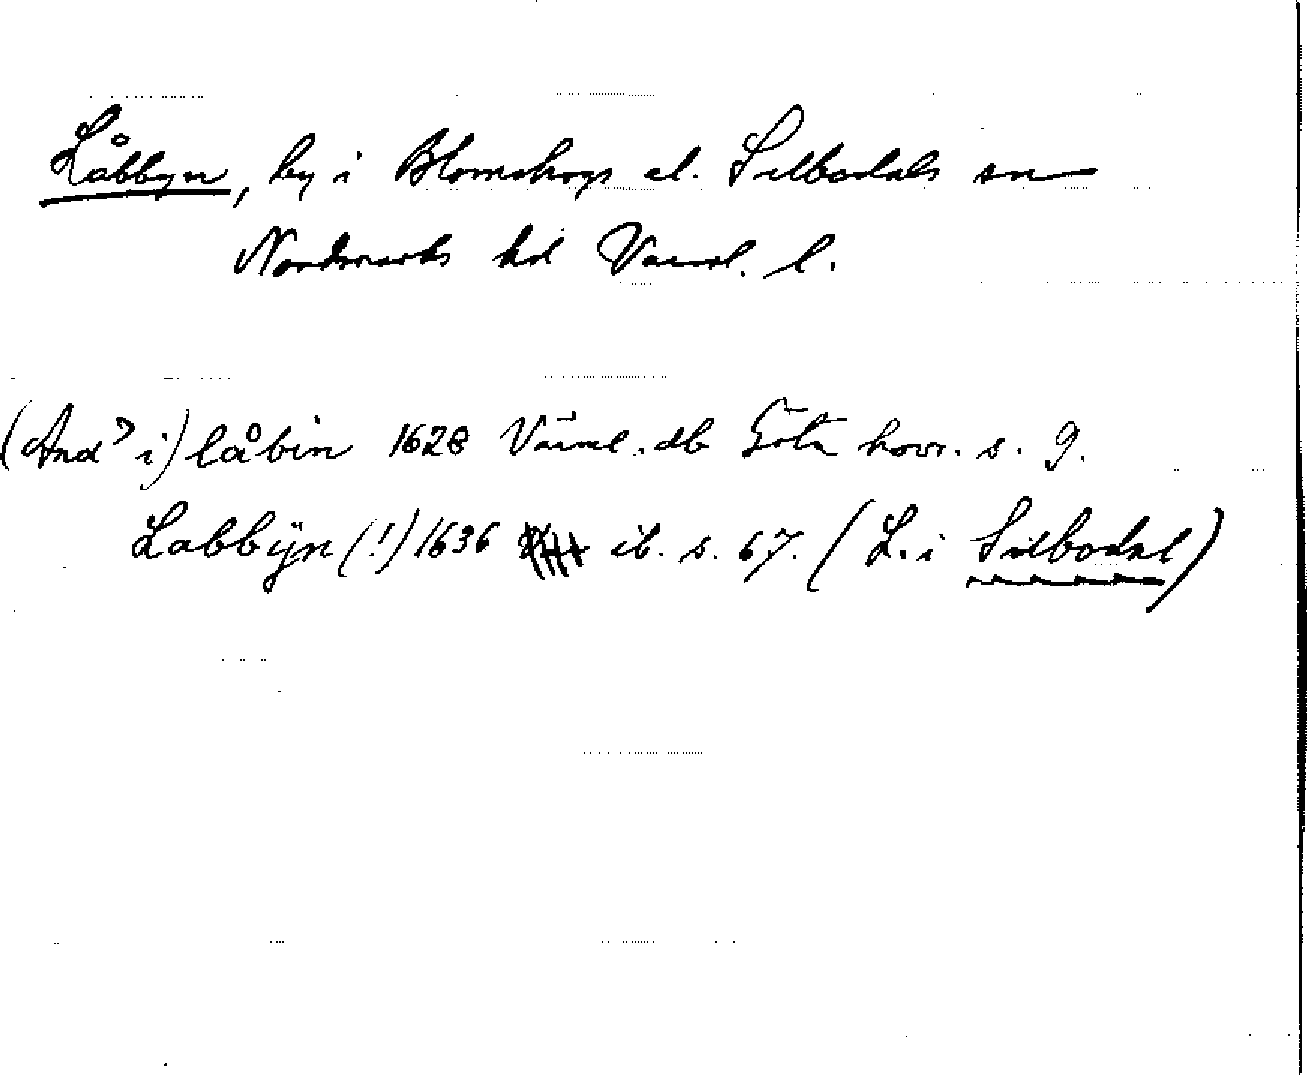 Låbbyn, by i Blomskogs el. Silbodals sn
Nordmarks hd Värml. l.
(And> i) låbin 1628 Värml. db Göta hovr. s. 9.
Labbÿn (!) 1636 ib. s. 67. (L. i Silbodal)